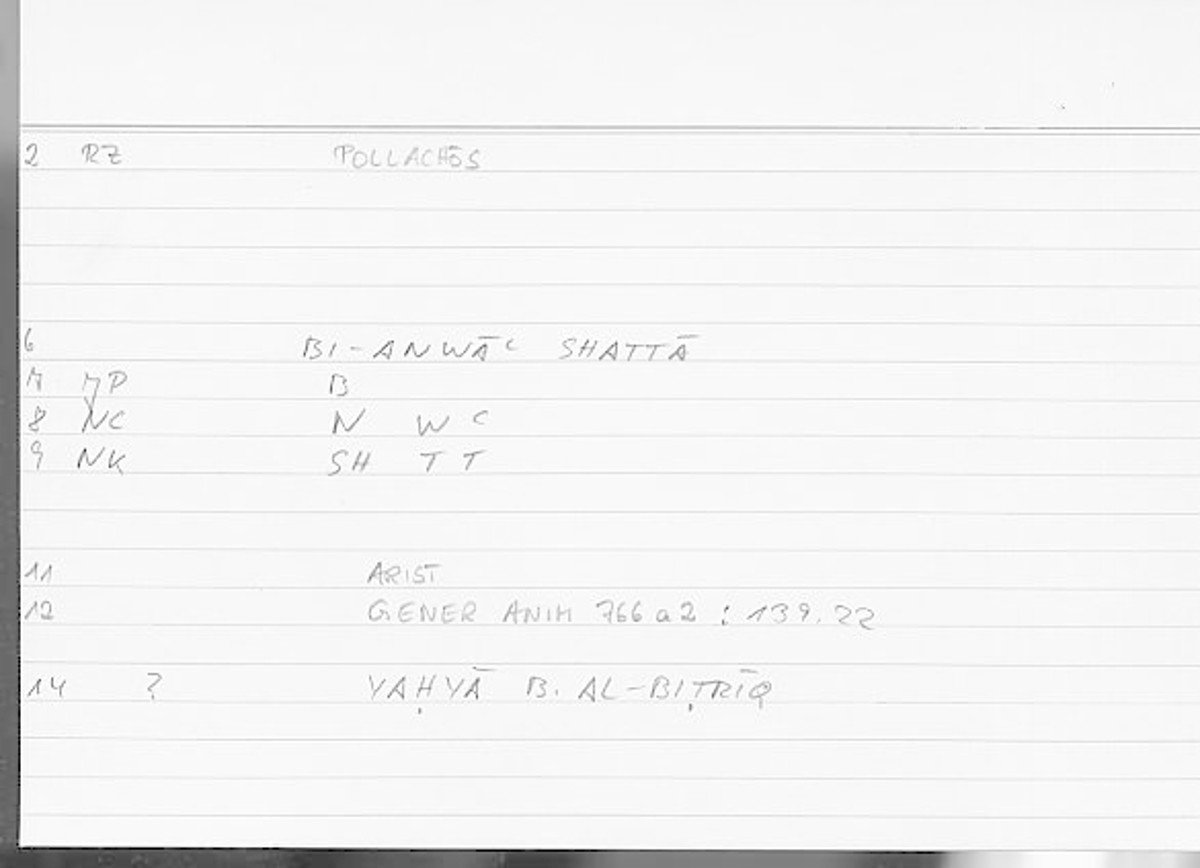 2 RZ POLLACHŌS
6 BI-ANWĀʿ SHATTĀ
7 JP B
8 NC N W ʿ
9 NK SH T T
11 ARIST
12 GENER ANIM 766 a 2 : 139.22
14 ? YAḤYĀ B. AL-BIṬRĪQ